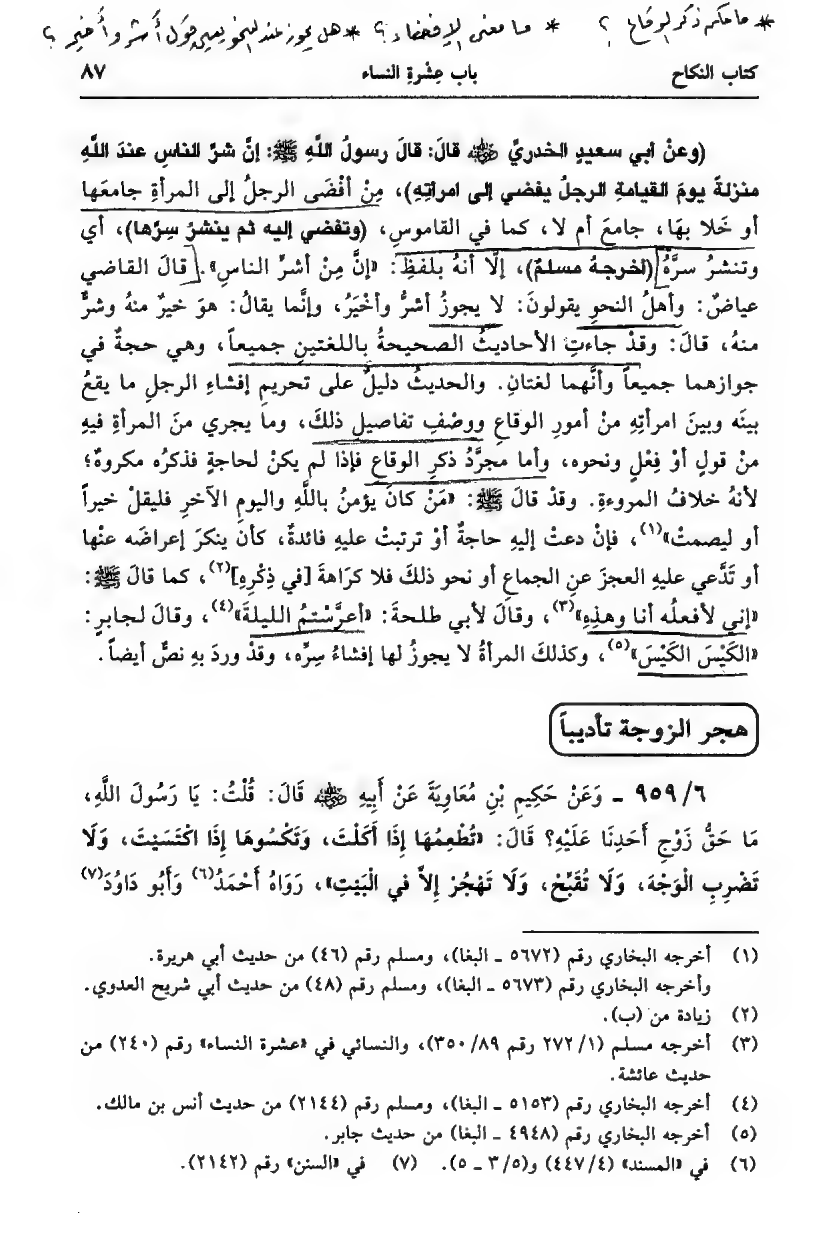 * ما حكم ذكر الوقاع؟ * ما معنى الإفضاء؟ * هل يجوز عند النحويين قول أشر وأخير؟
كتاب النكاح باب عِشْرةِ النساء ٨٧
(وعنْ أبي سعيدٍ الخدريِّ رضي الله عنه قالَ: قالَ رسولُ اللَّهِ ﷺ: إنَّ شرَّ الناسِ عندَ اللَّهِ
منزلةً يومَ القيامةِ الرجلُ يفضي إلى امراتِهِ)، مِنْ أفْضَى الرجلُ إلى المرأةِ جامعَها
أو خَلا بهَا، جامعَ أم لا، كما في القاموسِ، (وتفضي إليه ثم ينشرُ سِرَّها)، أي
وتنشرُ سرَّهُ (اخرجهُ مسلمٌ)، إلَّا أنهُ بلفظِ: «إنَّ مِنْ أشرِّ الناسِ». قالَ القاضي
عياضٌ: وأهلُ النحوِ يقولونَ: لا يجوزُ أشرُّ وأخْيَرُ، وإنَّما يقالُ: هوَ خيرٌ منهُ وشرٌّ
منهُ، قالَ: وقدْ جاءتِ الأحاديثُ الصحيحةُ باللغتينِ جميعاً، وهي حجةٌ في
جوازهما جميعاً وأنَّهما لغتانِ. والحديثُ دليلٌ على تحريمِ إفشاءِ الرجلِ ما يقعُ
بينَه وبينَ امرأتِهِ منْ أمورِ الوقاعِ ووصْفِ تفاصيلِ ذلكَ، وما يجري منَ المرأةِ فيهِ
منْ قولٍ أوْ فِعْلٍ ونحوِه، وأما مجرَّدُ ذكرِ الوقاعِ فإذا لم يكنْ لحاجةٍ فذكرُه مكروهٌ؛
لأنهُ خلافُ المروءةِ. وقدْ قالَ ﷺ: «مَنْ كانَ يؤمنُ باللَّهِ واليومِ الآخرِ فليقلْ خيراً
أو ليصمتْ»(١)، فإنْ دعتْ إليهِ حاجةٌ أوْ ترتبتْ عليهِ فائدةٌ، كأن ينكرَ إعراضَه عنْها
أو تَدَّعي عليهِ العجزَ عنِ الجماعِ أو نحوِ ذلكَ فلا كرَاهةَ [في ذِكْرِهِ](٢)، كما قالَ ﷺ:
«إني لأفعلُه أنا وهذِهِ»(٣)، وقالَ لأبي طلحةَ: «أعرَّسْتمُ الليلةَ»(٤)، وقالَ لجابرٍ:
«الكَيْسَ الكَيْسَ»(٥)، وكذلكَ المرأةُ لا يجوزُ لها إفشاءُ سِرِّه، وقدْ وردَ بهِ نصٌّ أيضاً.
هجر الزوجة تأديباً
٩٥٩/٦ - وَعَنْ حَكِيمِ بْنِ مُعَاوِيَةَ عَنْ أَبِيهِ رضي الله عنه قَالَ: قُلْتُ: يَا رَسُولَ اللَّهِ،
مَا حَقُّ زَوْجِ أَحَدِنَا عَلَيْهِ؟ قَالَ: «تُطْعِمُهَا إِذَا أَكَلْتَ، وَتَكْسُوهَا إِذَا اكْتَسَيْتَ، وَلَا
تَضْرِبِ الْوَجْهَ، وَلَا تُقَبِّحْ، وَلَا تَهْجُرْ إِلاَّ في الْبَيْتِ»، رَوَاهُ أَحْمَدُ(٦) وَأَبُو دَاوُدَ(٧)
(١) أخرجه البخاري رقم (٥٦٧٢ - البغا)، ومسلم رقم (٤٦) من حديث أبي هريرة.
وأخرجه البخاري رقم (٥٦٧٣ - البغا)، ومسلم رقم (٤٨) من حديث أبي شريح العدوي.
(٢) زيادة من (ب).
(٣) أخرجه مسلم (١/ ٢٧٢ رقم ٨٩/ ٣٥٠)، والنسائي في «عشرة النساء» رقم (٢٤٠) من
حديث عائشة.
(٤) أخرجه البخاري رقم (٥١٥٣ - البغا)، ومسلم رقم (٢١٤٤) من حديث أنس بن مالك.
(٥) أخرجه البخاري رقم (٤٩٤٨ - البغا) من حديث جابر.
(٦) في «المسند» (٤/ ٤٤٧) و(٥/ ٣ - ٥). (٧) في «السنن» رقم (٢١٤٢).